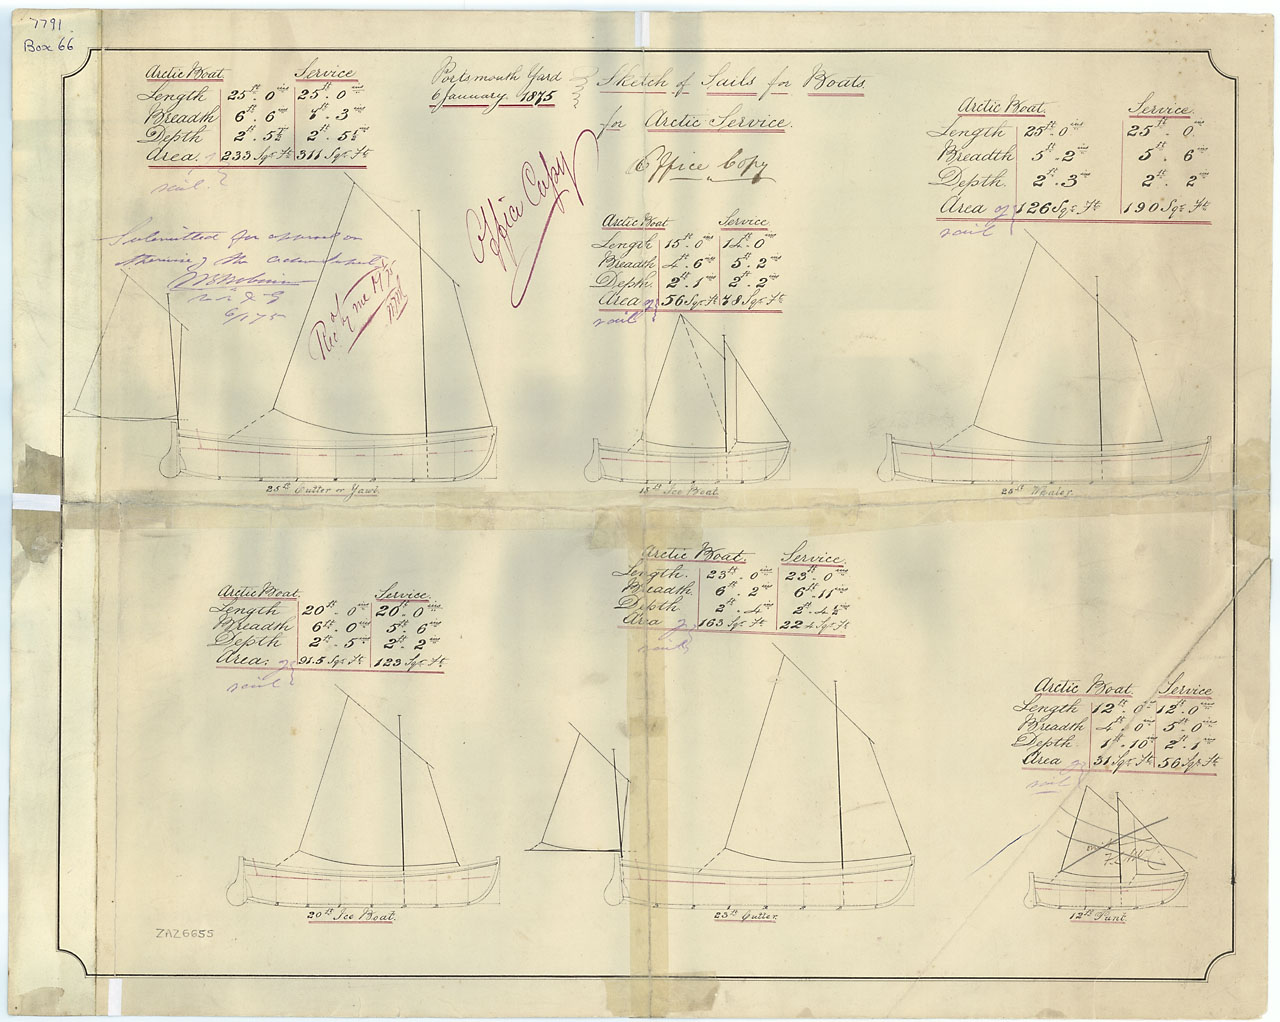 7791
Box 66
Portsmouth Yard
6 January 1875
Sketch of Sails for Boats
for Arctic Service.
Office Copy
Office Copy
Arctic Boat Service
Length 25ft. 0ins 25ft. 0ins
Breadth 6ft. 6ins 7ft. 3ins
Depth 2ft. 5½ 2ft. 5½ins
Area of 233 Sqr Ft 311 Sqr Ft
sail
Submitted for approval or
otherwise of the
6/1/75
Recd by me
25ft Cutter or Yawl.
Arctic Boat Service
Length 15ft. 0ins 14ft. 0ins
Breadth 4ft. 6ins 5ft. 2ins
Depth 2ft. 1ins 2ft. 2ins
Area of 56 Sqr Ft 78 Sqr Ft
sail
15ft Ice Boat.
Arctic Boat. Service.
Length 25ft. 0ins 25ft. 0ins
Breadth 5ft. 2ins 5ft. 6ins
Depth. 2ft. 3ins 2ft. 2ins
Area of 126 Sqr Ft 190 Sqr Ft
sail
25ft Whaler.
Arctic Boat. Service.
Length 20ft. 0ins 20ft. 0ins
Breadth 6ft. 0ins 5ft. 6ins
Depth 2ft. 5ins 2ft. 2ins
Area of 91.5 Sqr Ft 123 Sqr Ft
sail
20ft Ice Boat.
Arctic Boat. Service.
Length. 23ft. 0ins 23ft. 0ins
Breadth 6ft. 2ins 6ft. 11ins
Depth 2ft. 4ins 2ft. 4½ins
Area of 163 Sqr Ft 224 Sqr Ft
sail
23ft Cutter.
Arctic Boat. Service
Length 12ft. 0ins 12ft. 0ins
Breadth 4ft. 0ins 5ft. 0ins
Depth 1ft. 10ins 2ft. 1ins
Area of 31 Sqr Ft 56 Sqr Ft
sail
12ft Punt.
ZAZ6655